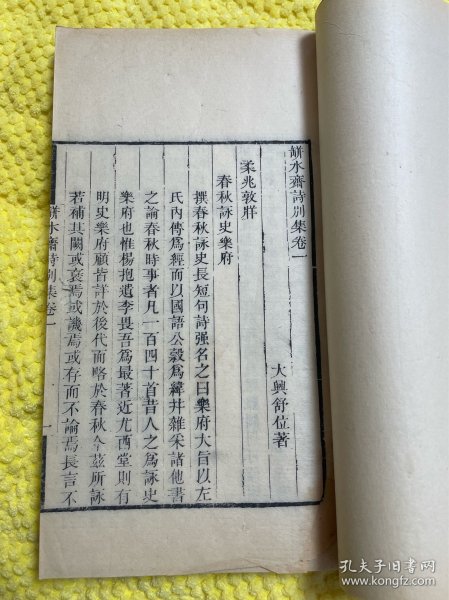 缾水齋詩別集卷一
大興舒位著
柔兆敦牂
春秋詠史樂府
撰春秋詠史長短句詩强名之曰樂府大旨以左
氏內傳爲經而以國語公穀爲緯并雜宋諸他書
之論春秋時事者凡一百四十首昔人之爲詠史
樂府也惟楊抱遺李畏吾爲最著近尤西堂則有
明史樂府顧皆詳於後代而略於春秋今茲所詠
若補其闕或哀焉或譏焉或存而不論焉長言不
缾水齋詩別集卷一
一
孔夫子旧书网
www.kongfz.com